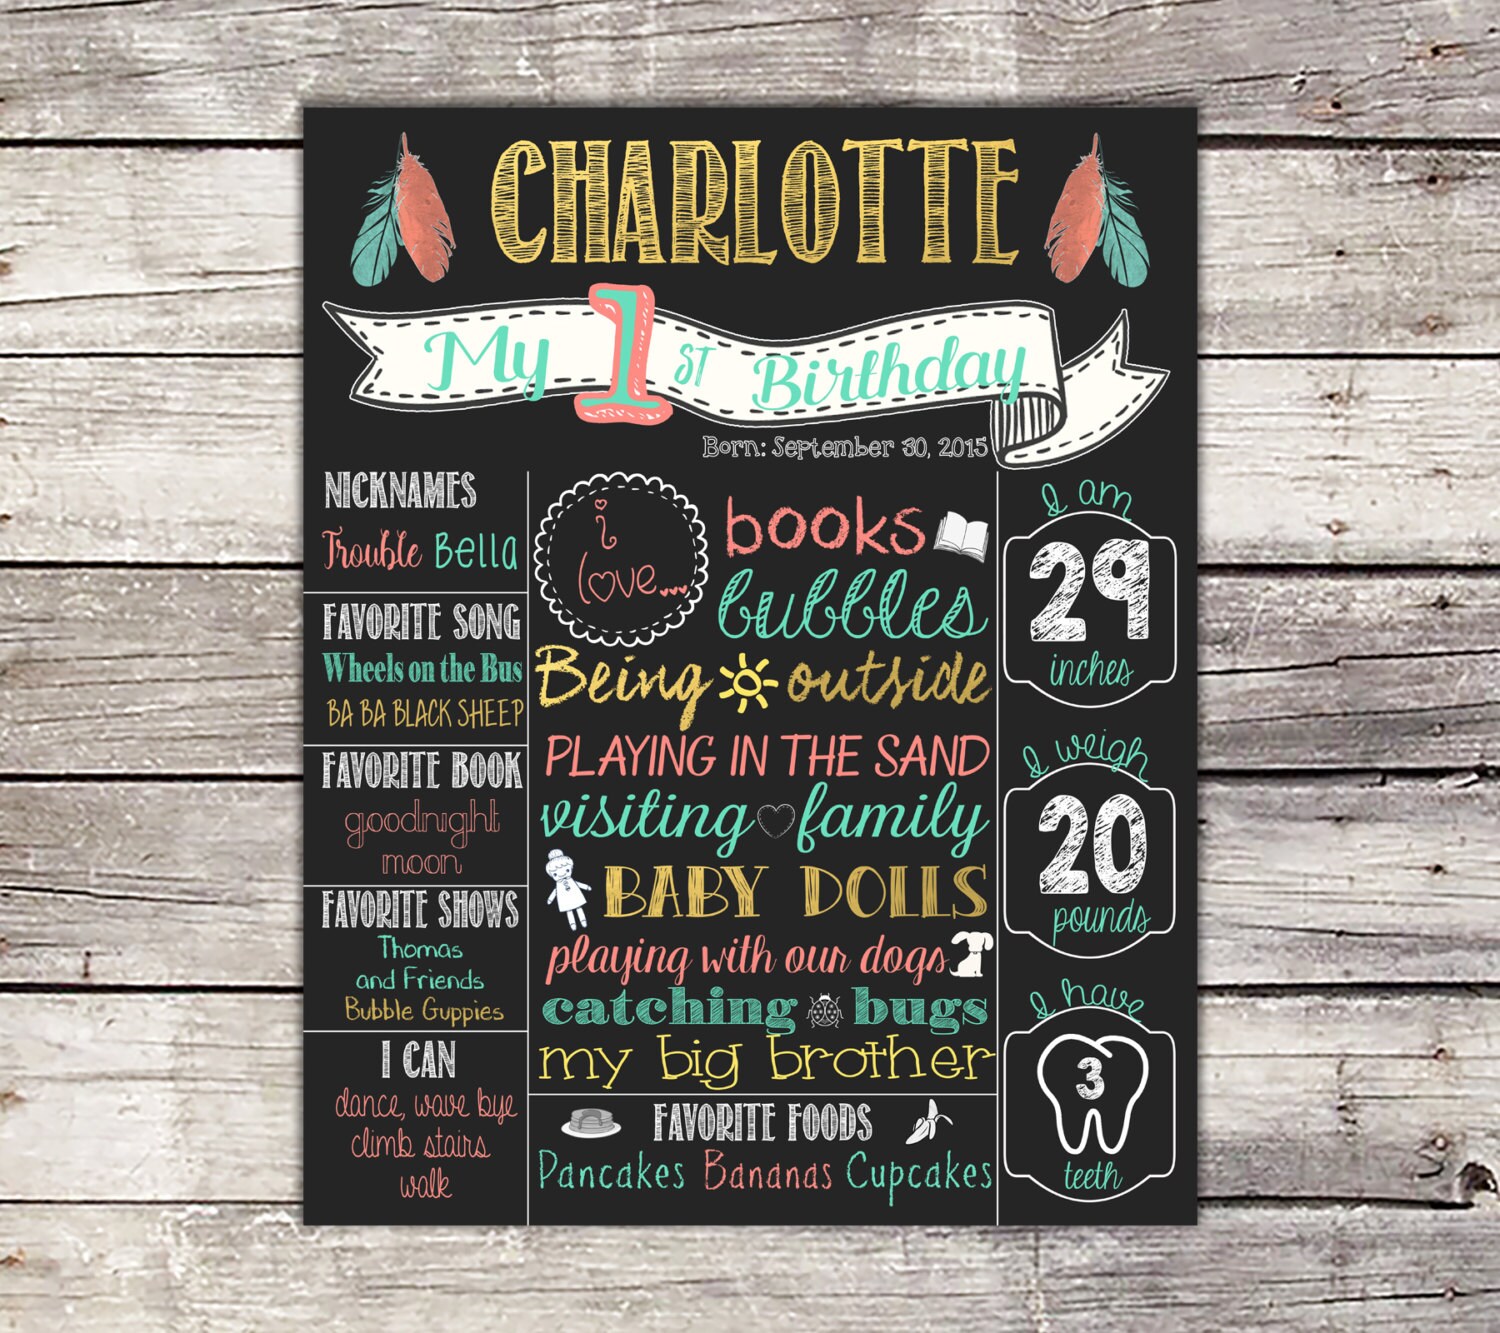 CHARLOTTE
My 1ST Birthday
Born: September 30, 2015
NICKNAMES
Trouble Bella
FAVORITE SONG
Wheels on the Bus
BA BA BLACK SHEEP
FAVORITE BOOK
goodnight
moon
FAVORITE SHOWS
Thomas
and Friends
Bubble Guppies
I CAN
dance, wave bye
climb stairs
walk
i
love...
books
bubbles
Being outside
PLAYING IN THE SAND
visiting family
BABY DOLLS
playing with our dogs
catching bugs
my big brother
FAVORITE FOODS
Pancakes Bananas Cupcakes
I am
29
inches
I weigh
20
pounds
I have
3
teeth